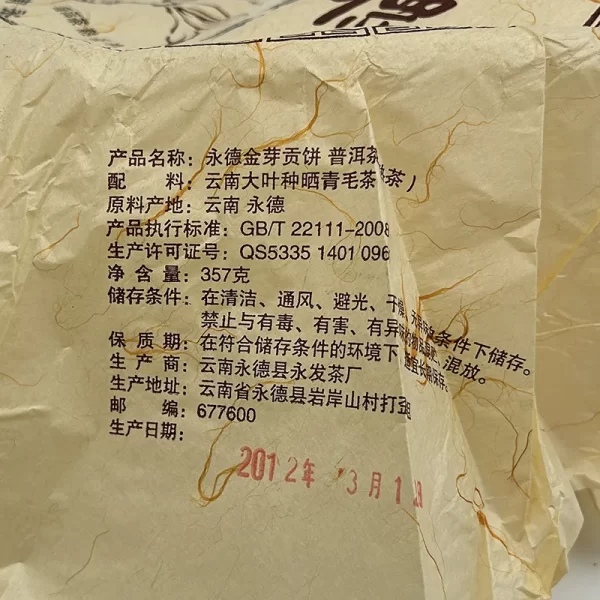 德
产品名称：永德金芽贡饼 普洱茶 茶）
配 料：云南大叶种晒青毛茶
原料产地：云南 永德
产品执行标准：GB/T 22111-2008
生产许可证号：QS5335 1401 096
净 含 量：357克
储存条件：在清洁、通风、避光、干燥、无异味条件下储存。
禁止与有毒、有害、有异味 混放。
保 质 期：在符合储存条件的环境下
生 产 商：云南永德县永发茶厂
生产地址：云南省永德县岩岸山村打
邮 编：677600
生产日期：
2012年 3月1